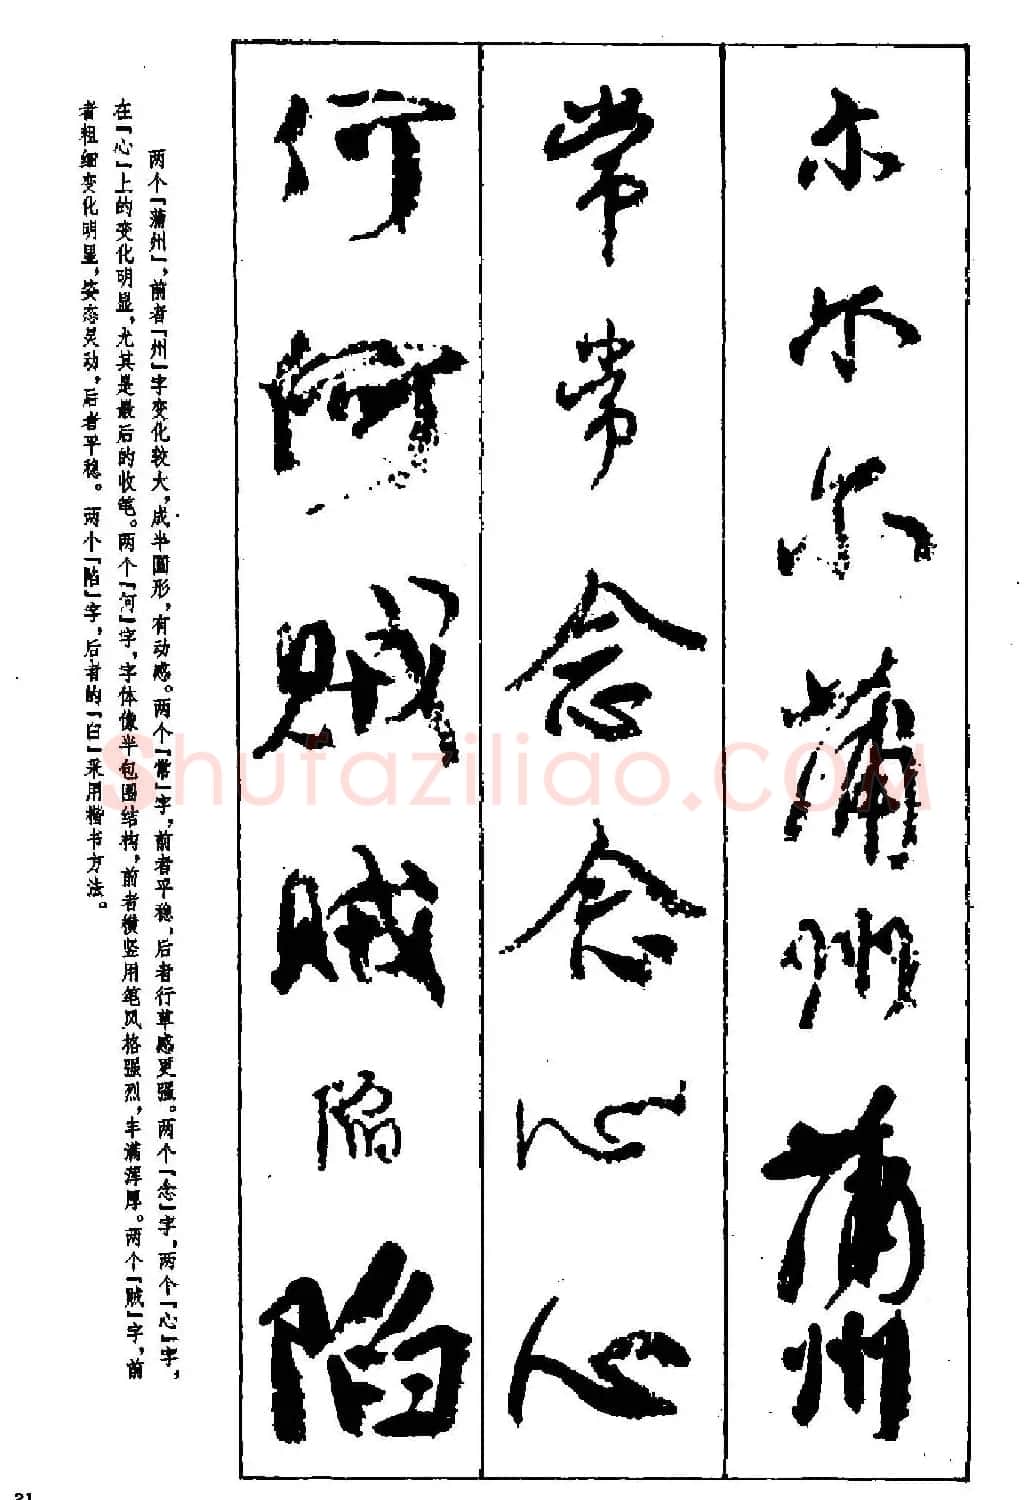 尔尔尔蒲州蒲州
常常念念心心
何何贼贼陷陷
两个「蒲州」,前者「州」字变化较大,成半圆形,有动感。两个「常」字,前者平稳,后者行草感更强。两个「念」字,两个「心」字,
在「心」上的变化明显,尤其是最后的收笔。两个「何」字,字体像半包围结构,前者横竖用笔风格强烈,丰满浑厚。两个「贼」字,前
者粗细变化明显,姿态灵动,后者平稳。两个「陷」字,后者的「臼」采用楷书方法。
21
Shufaziliao.COM